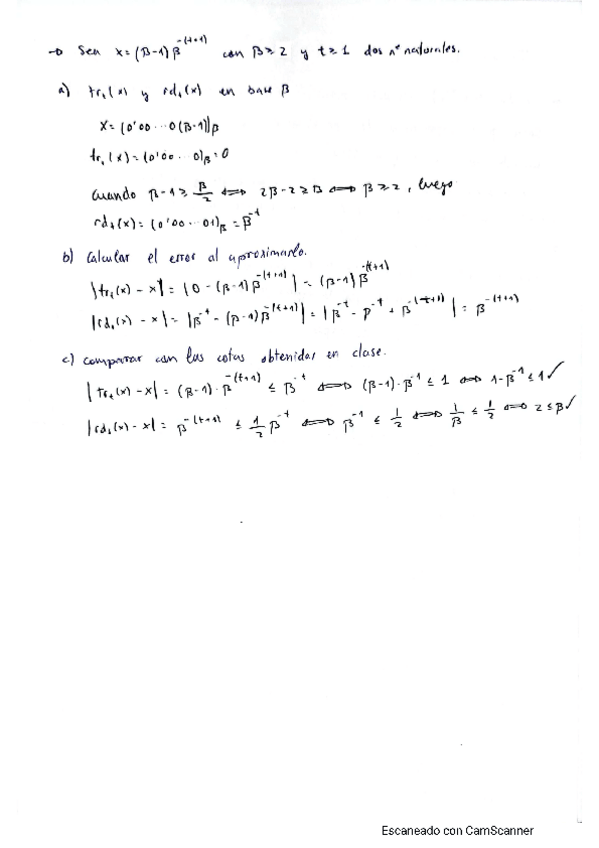 → Sea x = (β-1) β^{-(t+1)} con β ≥ 2 y t ≥ 1 dos nº naturales.
a) tr_t(x) y rd_t(x) en base β
x = (0'00 ... 0(β-1))_β
tr_t(x) = (0'00 ... 0)_β = 0
Cuando β-1 ≥ β/2 ⟺ 2β-2 ≥ β ⟺ β ≥ 2, luego
rd_t(x) = (0'00 ... 01)_β = β^{-t}
b) Calcular el error al aproximarlo.
|tr_t(x) - x| = |0 - (β-1) β^{-(t+1)}| = (β-1) β^{-(t+1)}
|rd_t(x) - x| = |β^{-t} - (β-1) β^{-(t+1)}| = |β^{-t} - β^{-t} + β^{-(t+1)}| = β^{-(t+1)}
c) Comparar con las cotas obtenidas en clase.
|tr_t(x) - x| = (β-1) · β^{-(t+1)} ≤ β^{-t} ⟺ (β-1) · β^{-1} ≤ 1 ⟺ 1 - β^{-1} ≤ 1 ✓
|rd_t(x) - x| = β^{-(t+1)} ≤ 1/2 β^{-t} ⟺ β^{-1} ≤ 1/2 ⟺ 1/β ≤ 1/2 ⟺ 2 ≤ β ✓
Escaneado con CamScanner